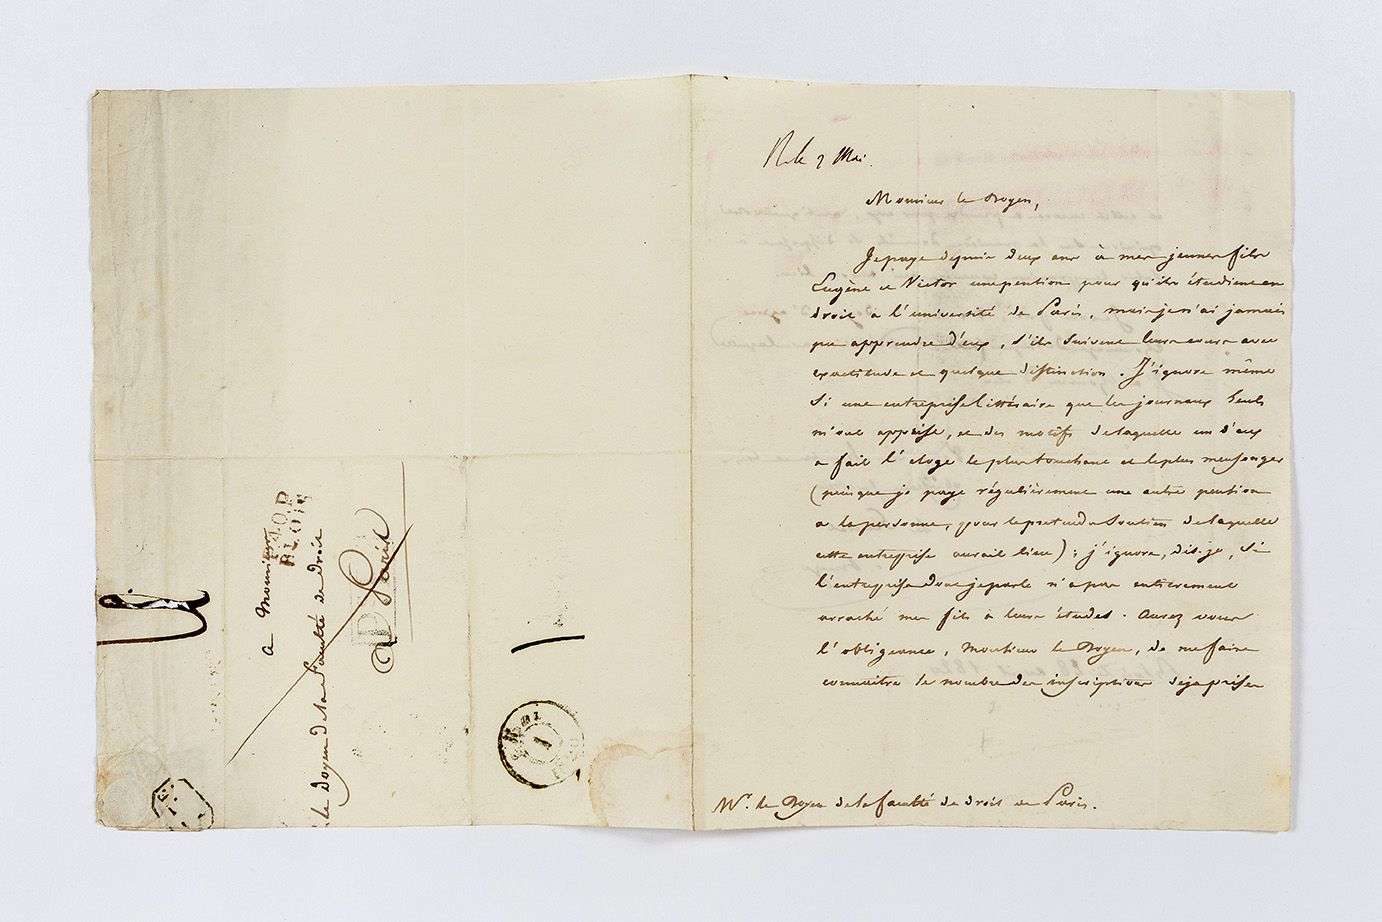 R. le 7 Mai.
Monsieur le Doyen,
Je paye depuis deux ans à mes jeunes fils
Eugène et Victor une pention pour qu'ils étudient en
droit à l'université de Paris, mais je n'ai jamais
pu apprendre d'eux, s'ils suivent leurs cours avec
exactitude et quelque distinction. J'ignore même
si une entreprise littéraire que les journaux seuls
m'ont apprise, et des motifs de laquelle un d'eux
a fait l'éloge le plus touchant et le plus mensonger
(puisque je paye régulièrement une autre pention
à la personne, pour le pretendu soutien de laquelle
cette entreprise aurait lieu) ; j'ignore, dis-je, si
l'entreprise dont je parle n'a pas entierement
arraché mes fils à leurs études. Aurez vous
l'obligeance, Monsieur le Doyen, de me faire
connaitre le nombre des inscriptions deja prises
Mr. le Doyen de la faculté de droit de Paris.
a Monsieur
le Doyen de la Faculté de droit
Paris
BLOIS